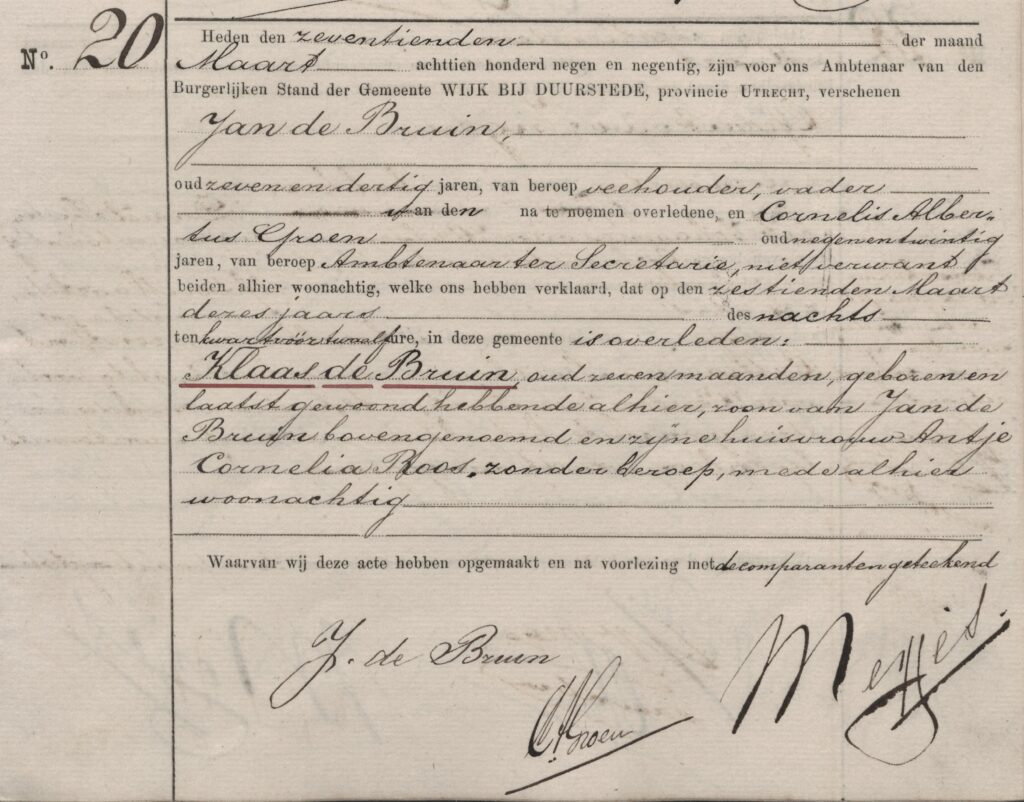 No. 20
Heden den zeventienden der maand
Maart achttien honderd negen en negentig, zijn voor ons Ambtenaar van den
Burgerlijken Stand der Gemeente WIJK BIJ DUURSTEDE, provincie UTRECHT, verschenen
Jan de Bruin,
oud zeven en dertig jaren, van beroep veehouder, vader
van den na te noemen overledene, en Cornelis Alber-
tus Groen oud negen en twintig
jaren, van beroep Ambtenaar ter Secretarie, niet verwant
beiden alhier woonachtig, welke ons hebben verklaard, dat op den zestienden Maart
dezes jaars des nachts
ten kwart vóór twaalf ure, in deze gemeente is overleden:
Klaas de Bruin, oud zeven maanden, geboren en
laatst gewoond hebbende alhier, zoon van Jan de
Bruin bovengenoemd en zijne huisvrouw Antje
Cornelia Roos, zonder beroep, mede alhier
woonachtig
Waarvan wij deze acte hebben opgemaakt en na voorlezing met de comparanten geteekend
J. de Bruin
CAGroen